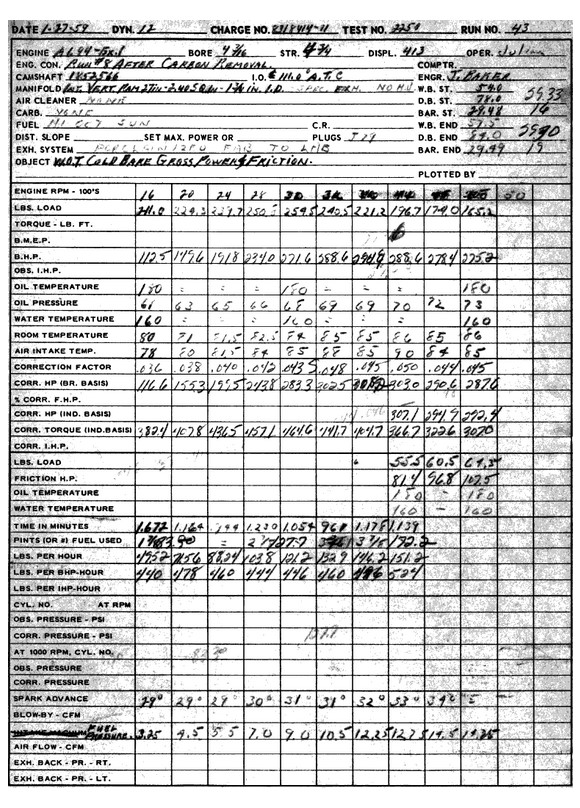 DATE 1-27-59 DYN. 12 CHARGE NO. 8318414-11 TEST NO. 2250 RUN NO. 43
ENGINE A694-Ex.1 BORE 4 3/16 STR. DISPL. 413 OPER.
ENG. CON. RUN #8 AFTER CARBON REMOVAL. COMPTR.
CAMSHAFT 1852566 I.O. 111.0 A.T.C ENGR. J. BAKER
MANIFOLD INT. VERT RAM I.D. EXH. NO HU W.B. ST. 54.0
AIR CLEANER NONE D.B. ST. 78.0 5933
CARB. BAR. ST. 29.48 16
FUEL OCT SUN C.R. W.B. END 57.0
DIST. SLOPE SET MAX. POWER OR PLUGS J79 D.B. END 84.0 5920
EXH. SYSTEM BAR. END 29.49 19
OBJECT W.O.T. COLD BARE GROSS POWER & FRICTION.
PLOTTED BY
ENGINE RPM - 100'S 16 20 24 28 50
LBS. LOAD 211.0 259.5 240.5 221.2 196.7 174.0 165.2
TORQUE - LB. FT.
B.M.E.P.
B.H.P. 112.5 149.6 191.8 234.0 271.6 288.6 288.6 278.4 275.2
OBS. I.H.P.
OIL TEMPERATURE 180 = = = 180 = = = 180
OIL PRESSURE 61 63 65 66 68 69 69 70 72 73
WATER TEMPERATURE 160 = = = 160 = = = 160
ROOM TEMPERATURE 80 81 81.5 82.5 84 85 85 86 85 86
AIR INTAKE TEMP. 78 80 81.5 84 85 88 85 90 84 85
CORRECTION FACTOR .036 .038 .040 .042 .043 .048 .045 .050 .044 .045
CORR. HP (BR. BASIS) 116.6 155.3 199.5 243.8 283.3 302.5 303.0 290.6 287.6
% CORR. F.H.P.
CORR. HP (IND. BASIS) 307.1 294.9 292.4
CORR. TORQUE (IND. BASIS) 382.4 407.8 436.5 457.1 464.6 441.7 404.7 366.7 322.6 307.0
CORR. I.H.P.
LBS. LOAD 55.5 60.5 64.5
FRICTION H.P. 81.4 96.8 107.5
OIL TEMPERATURE 180 - 180
WATER TEMPERATURE 160 - 160
TIME IN MINUTES 1.672 1.164 1.230 1.054 .961 1.178 1.139
PINTS (OR #) FUEL USED
LBS. PER HOUR 49.52 71.56 88.24 103.8 121.2 132.9 146.2 151.2
LBS. PER BHP-HOUR .440 .478 .460 .444 .446 .460 .524
LBS. PER IHP-HOUR
CYL. NO. AT RPM
OBS. PRESSURE - PSI
CORR. PRESSURE - PSI
AT 1000 RPM, CYL. NO.
OBS. PRESSURE
CORR. PRESSURE
SPARK ADVANCE 29° 29° 29° 30° 31° 31° 32° 33° 34°
BLOW-BY - CFM
FUEL PRESSURE. 3.25 4.5 5.5 7.0 9.0 10.5 12.25 12.75 14.5 14.25
AIR FLOW - CFM
EXH. BACK - PR. - RT.
EXH. BACK - PR. - LT.